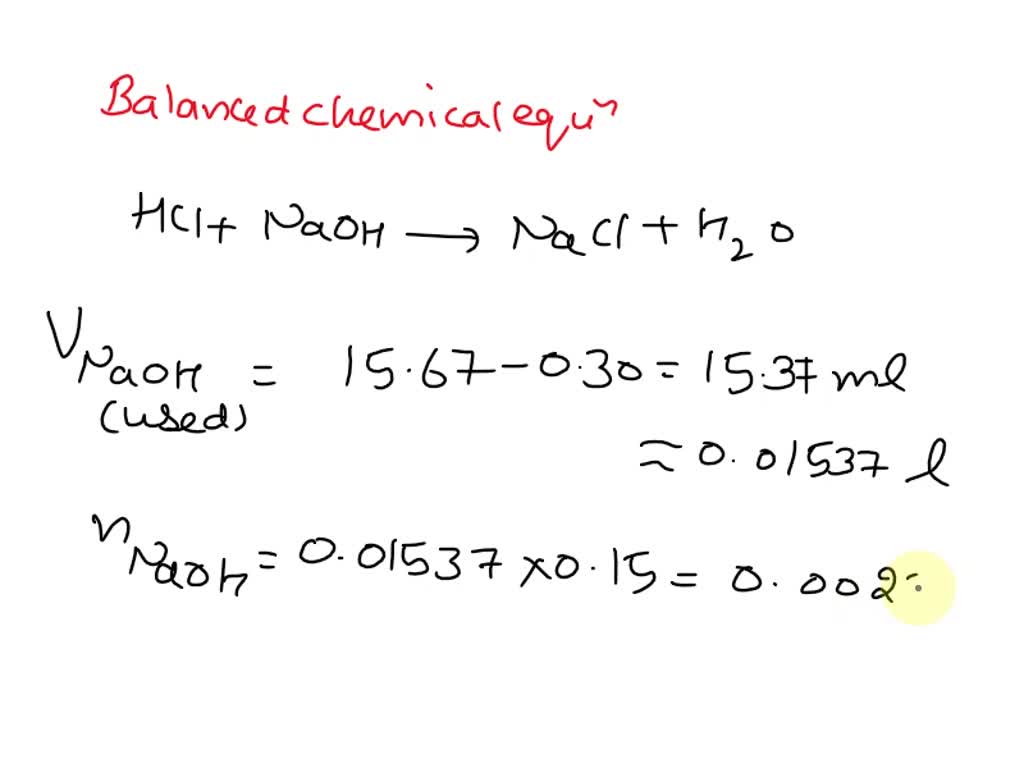 Balanced chemical equⁿ
HCl + NaOH → NaCl + H₂O
V NaOH (used) = 15.67 - 0.30 = 15.37 ml
≈ 0.01537 l
n NaOH = 0.01537 × 0.15 = 0.002